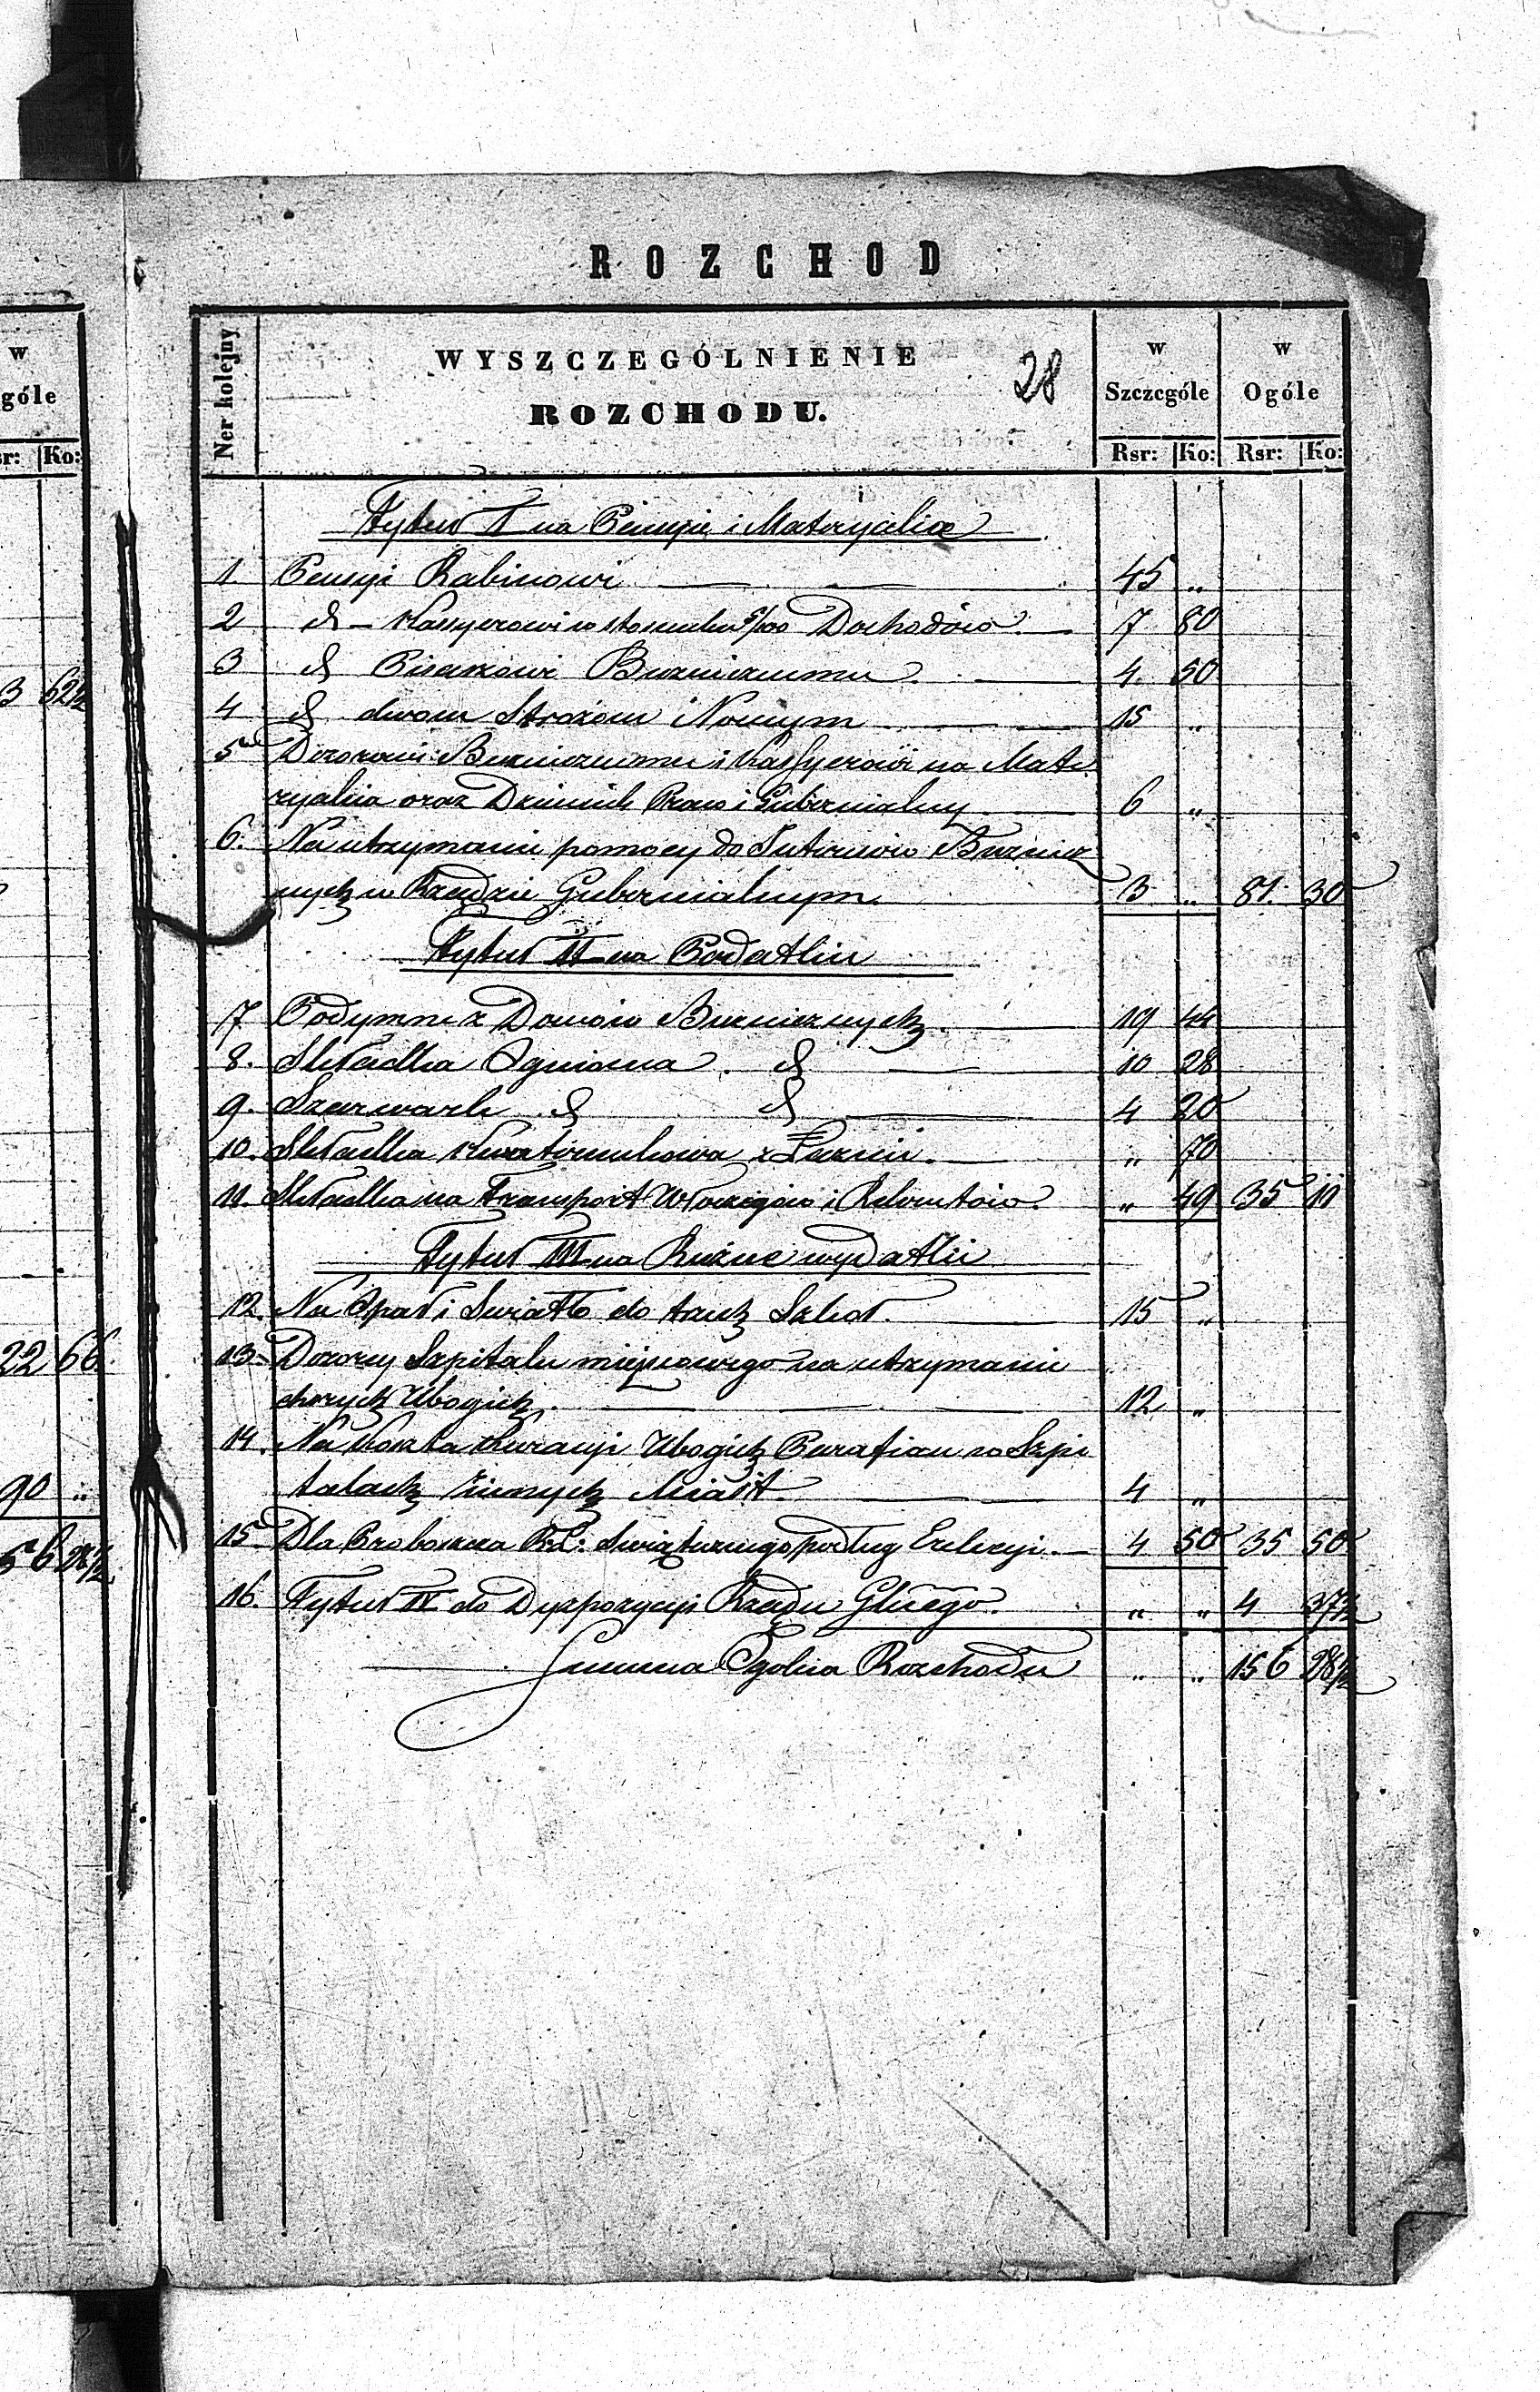 w
góle
sr: Ko:
3 62½
22 66.
90 "
56 28½
ROZCHOD
Ner kolejny
WYSZCZEGÓLNIENIE
ROZCHODU.
28
w
Szczególe
w
Ogóle
Rsr: Ko: Rsr: Ko:
Tytuł I na Pensyie i Materyalia
1 Pensyi Rabinowi 45 "
2 d – Kassyerowi w stosunku 5/100 Dochodów 7 80
3 d Pisarzowi Bużniczemu 4. 50
4 d dwom Stróżom Nocnym 15 "
5 Dozorowi Bużniczemu i Kassyerowi na Mate
ryalia oraz Dziennik Praw i Gubernialny 6 "
6. Na utrzymanie pomocy do Bużnicz
nych w Rządzie Gubernialnym 3 " 81. 30
Tytuł II na Podatki
7 Podymne z Domów Bużnicznych. 19 44
8. Składka Ogniowa. d 10 28
9. Szarwark d d 4 20
10. Składka Kwaterunkowa z Łaźni. " 70
11. Składka na Transport Włóczęgów i Rekrutów. " 49 35 11
Tytuł III na Różne wydatki
12. Na Opał i Światło do trzech Szkół. 15 "
13. Dozorcy Szpitalu miejscowego na utrzymanie
chorych Ubogich. 12 "
14. Na Koszta Kuracyi Ubogich Parafian w Szpi
talach innych Miast. 4 "
15. Dla Proboszcza R:L: Świątecznego podług Erekcyi. 4 50 35 50
16. Tytuł IV do Dyspozycyi Rządu Glnego. " " 4 37½
Summa Ogólna Rozchodu " " 156 28½